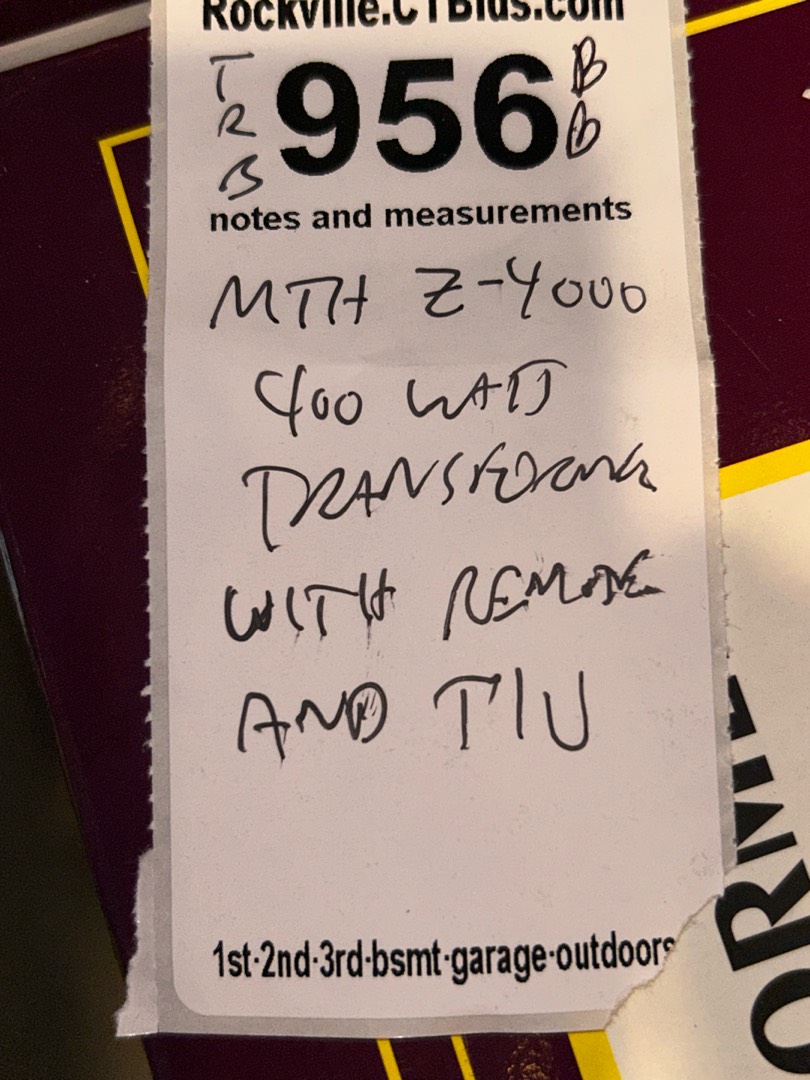 Rockville.CTBids.com
T R B 956 B B
notes and measurements
MTH Z-4000
400 WATT
TRANSFORMER
WITH REMOTE
AND TIU
1st·2nd·3rd·bsmt·garage·outdoors
ORME